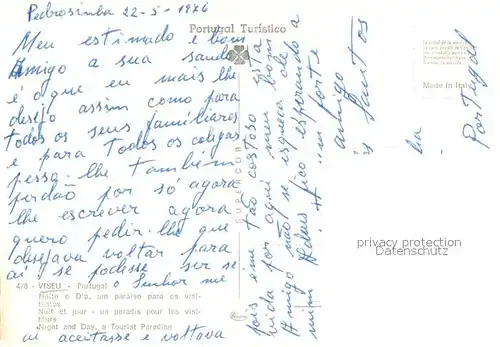 Pedrosinha 22-5-1976
Portugal Turístico
Meu estimado e bom
Amigo a sua saude
é o que eu mais lhe
desejo assim como para
todos os seus familiares
e para todos os colegas
pessa-lhe também
perdão por só agora
lhe escrever agora
quero pedir-lhe que
desejava voltar para
aí se podesse ser se
o Senhor me
478 - VISEU - Portugal
Noite e Dia, um paraíso para os visi-
tantes
Nuit et jour - un paradis pour les visi-
teurs
Night and Day, a Tourist Paradise
aceitasse e voltava
SUPERCOR
pois é me tão costoso esta
vida por aqui meu bom
Amigo não se esqueca de
mim Adeus fico esperando a
um forte
amigo
Santos
Made in Italy
Portugal
privacy protection
Datenschutz